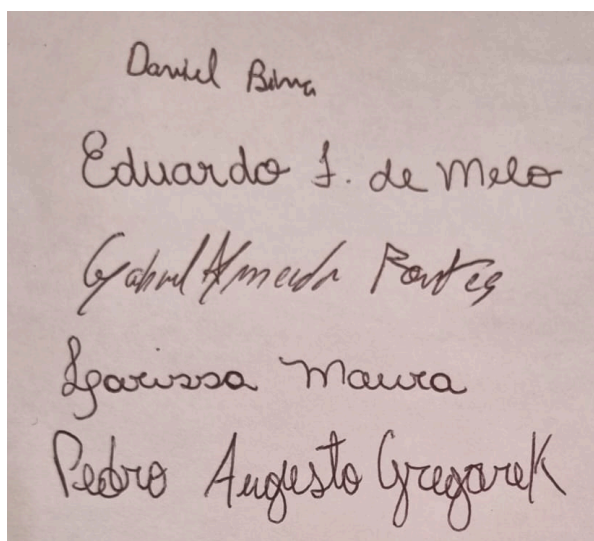 Daniel
Eduardo J. de Melo
Gabriel Almeida Pontes
Larissa Maura
Pedro Augusto Gregarek